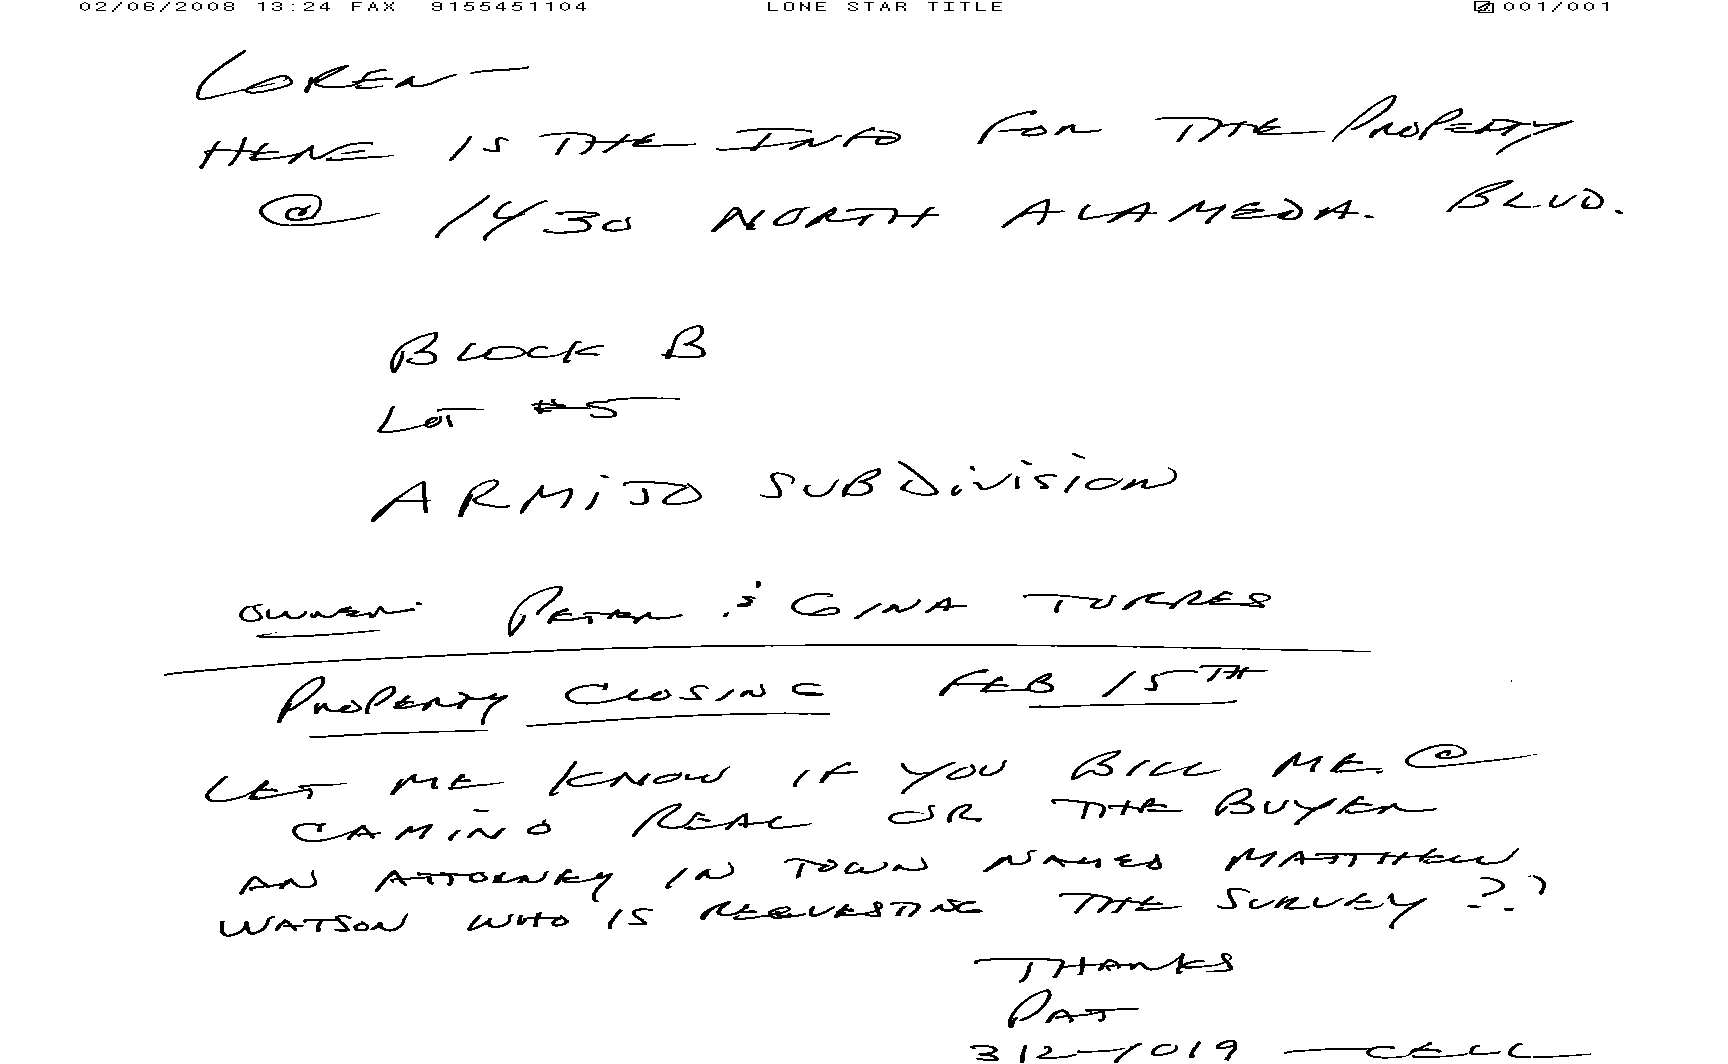 02/06/2008 13:24 FAX 9155451104 LONE STAR TITLE 001/001
LOREN —
HERE IS THE INFO FOR THE PROPERTY
@ 1430 NORTH ALAMEDA. BLVD.
BLOCK B
LOT #5
ARMIJO SUBDIVISION
OWNER: PETER & GINA TORRES
PROPERTY CLOSING FEB 15TH
LET ME KNOW IF YOU BILL ME @
CAMINO REAL OR THE BUYER
AN ATTORNEY IN TOWN NAMED MATTHEW
WATSON WHO IS REQUESTING THE SURVEY??
THANKS
PAT
312-1019 — CELL